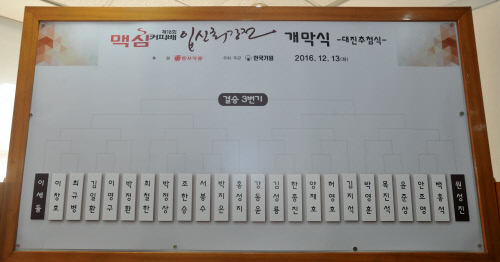 제18회
맥심커피배 입신최강전 개막식 -대진추첨식-
후원 동서식품 주최·주관 한국기원 2016. 12. 13(화)
결승 3번기
이세돌
이창호
최규병
김일환
이영구
박정환
최철한
박정상
조한승
서봉수
박지은
홍성지
강동윤
김성룡
한종진
양재호
허영호
김지석
박영훈
목진석
윤준상
안조영
백홍석
원성진